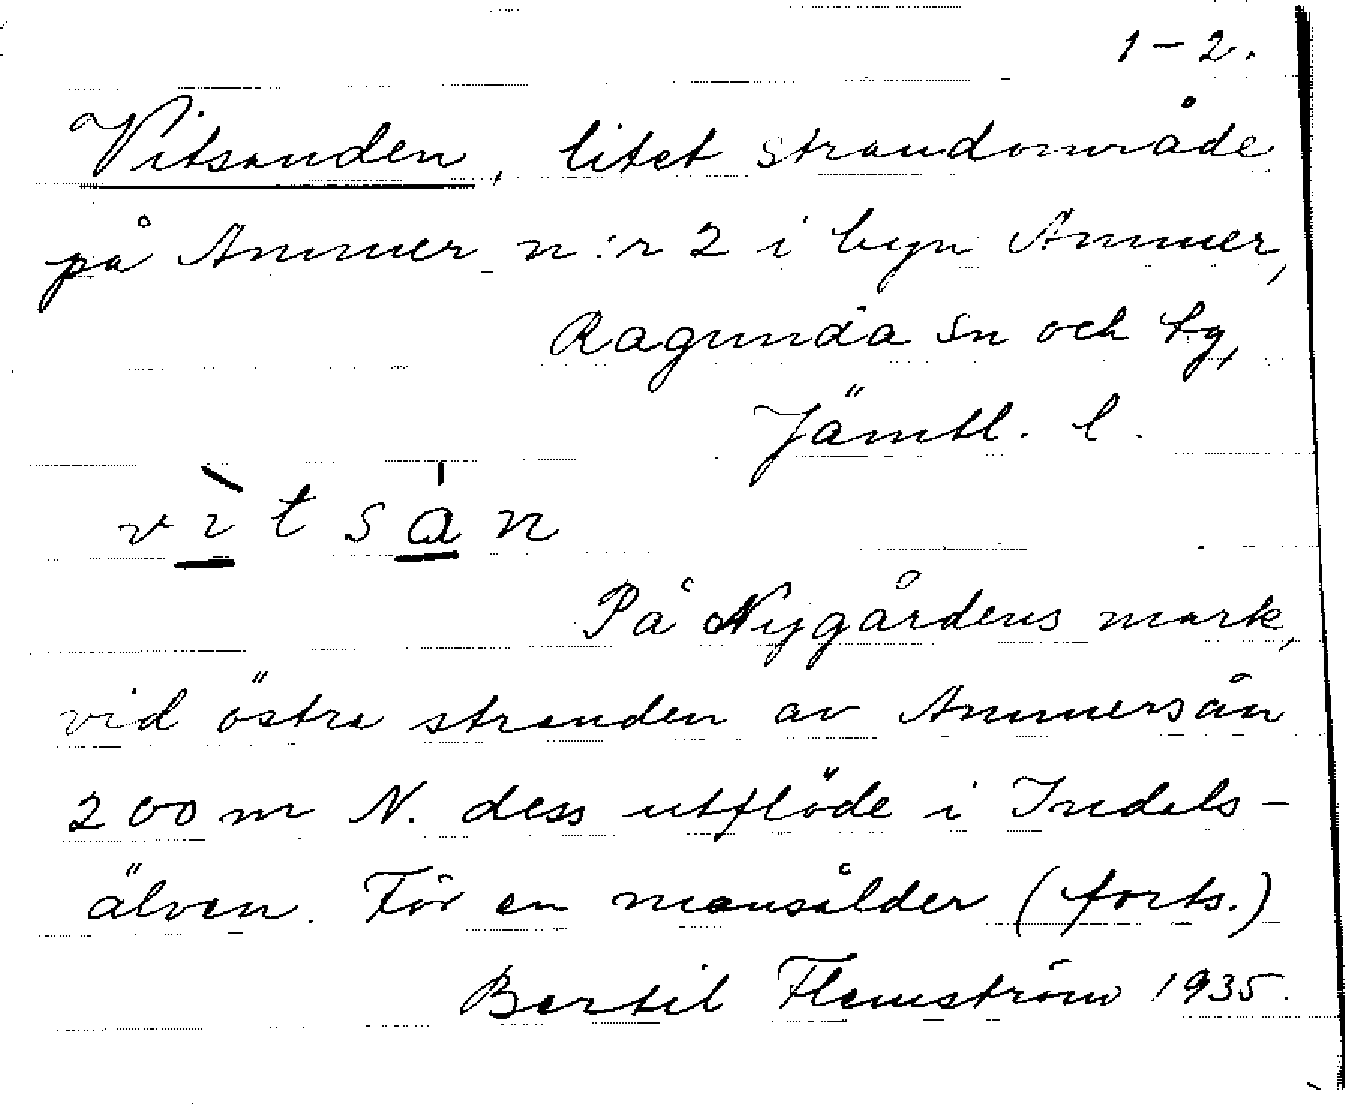 1-2.
Vitsanden, litet strandområde
på Ammer n:r 2 i byn Ammer,
Ragunda sn och tg,
Jämtl. l.
vìtsán
På Nygårdens mark,
vid östra stranden av Ammersån
200 m N. dess utflöde i Indals-
älven. För en mansålder (forts.)
Bertil Flemström 1935.